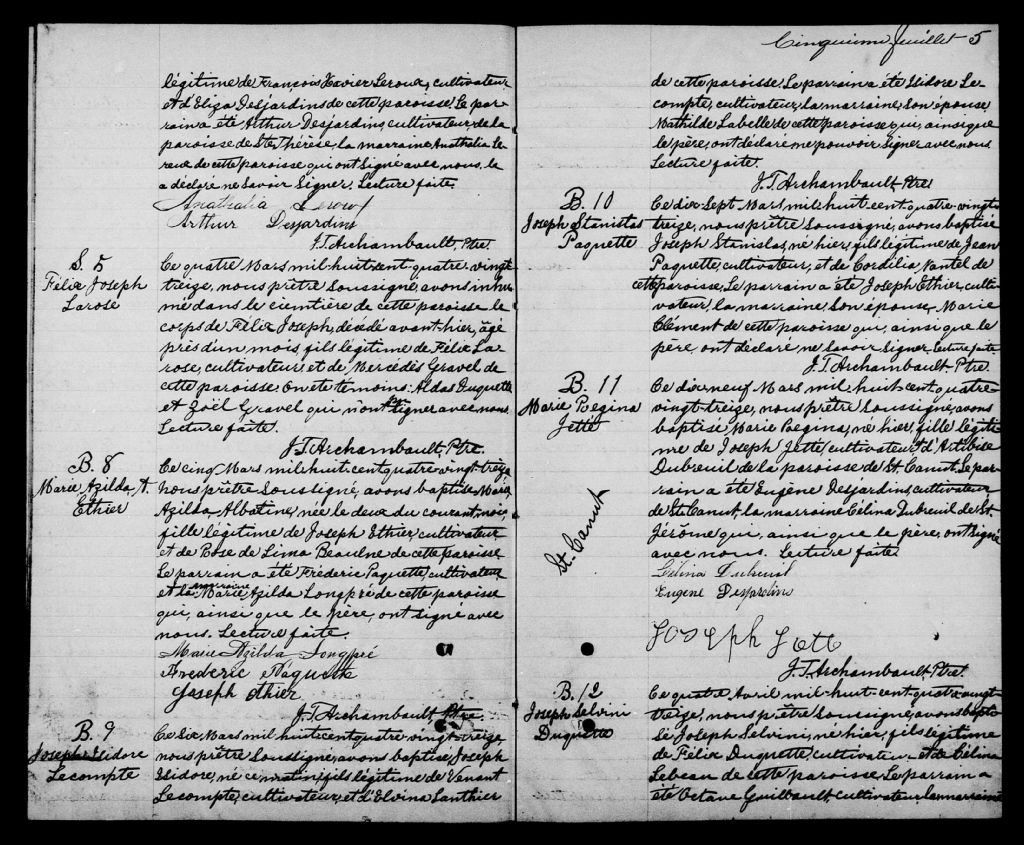 légitime de François Xavier Leroux, cultivateur,
et d'Eliza Desjardins de cette paroisse. Le par-
rain a été Arthur Desjardins, cultivateur, de la
paroisse de Ste. Thérèse, la marraine Anathalia Le-
roux de cette paroisse qui ont signé avec nous. Le
a déclaré ne savoir signer. Lecture faite.
Anathalia Leroux
Arthur Desjardins
J.T. Archambault, Ptre.
S. 5
Félix Joseph
Larose
Ce quatre Mars mil huit cent quatre-vingt
treize, nous prêtre soussigné, avons inhu-
mé dans le cimetière de cette paroisse le
corps de Félix Joseph, décédé avant-hier, âgé
près d'un mois, fils légitime de Félix La-
rose, cultivateur, et de Mercédès Gravel de
cette paroisse. Ont été témoins: Aldas Duquette
et Zoël Gravel qui n'ont pu signer avec nous.
Lecture faite.
J.T. Archambault, Ptre.
B. 8
Marie Azilda, A.
Ethier
Ce cinq Mars mil huit cent quatre vingt-treize
nous prêtre soussigné, avons baptisé Marie
Azilda, Albertine, née le deux du courant mois,
fille légitime de Joseph Ethier, cultivateur
et de Rose de Lima Beaulne de cette paroisse
Le parrain a été Fréderic Paquette, cultivateur
et la marraine Marie Azilda Longpré de cette paroisse
qui, ainsi que le père, ont signé avec
nous. Lecture faite.
Marie Azilda Longpré
Frederic Paquette
Joseph Ethier
J.T. Archambault, Ptre.
B. 9
Joseph Isidore
Lecompte
Ce six Mars mil huit cent quatre vingt-treize
nous prêtre soussigné, avons baptisé, Joseph
Isidore, né ce matin, fils légitime de Venant
Lecompte, cultivateur, et d'Elvina Lanthier
Cinquième feuillet 5
de cette paroisse. Le parrain a été Isidore Le-
compte, cultivateur, la marraine, son épouse
Mathilde Labelle de cette paroisse qui, ainsi que
le père, ont déclaré ne pouvoir signer avec nous
Lecture faite.
J.T. Archambault Ptre
B. 10
Joseph Stanislas
Paquette
Ce dix Sept Mars mil huit-cent-quatre-vingt
treize, nous prêtre soussigné, avons baptisé
Joseph Stanislas, né hier, fils légitime de Jean
Paquette, cultivateur, et de Cordélia Nantel de
cette paroisse. Le parrain a été Joseph Ethier, culti-
vateur, la marraine son épouse, Marie
Clément de cette paroisse qui, ainsi que le
père, ont déclaré ne savoir signer. Lecture faite.
J.T. Archambault Ptre.
B. 11
Marie Roegina
Jetté
St. Canut
Ce dix neuf Mars mil huit cent quatre
vingt-treize, nous prêtre soussigné, avons
baptisé Marie Roegina, né hier, fille légiti-
me de Joseph Jetté, cultivateur, et d'Artélise
Dubreuil de la paroisse de St Canut. Le par-
rain a été Eugène Desjardins, cultivateur
de St Canut, la marraine Célina Dubreuil de St.
Jérôme qui, ainsi que le père, ont signé
avec nous. Lecture faite.
Célina Dubreuil
Eugene Desjardins
Joseph Jette
J.T. Archambault, Ptre.
B. 12
Joseph Selvini
Duquette
Ce quatre Avril mil huit-cent-quatre vingt
treize, nous prêtre soussigné, avons bapti-
sé Joseph Selvini, né hier, fils légitime
de Félix Duquette, cultivateur et de Célina
Lebeau de cette paroisse. Le parrain a
été Octave Guilbault, cultivateur, la marraine